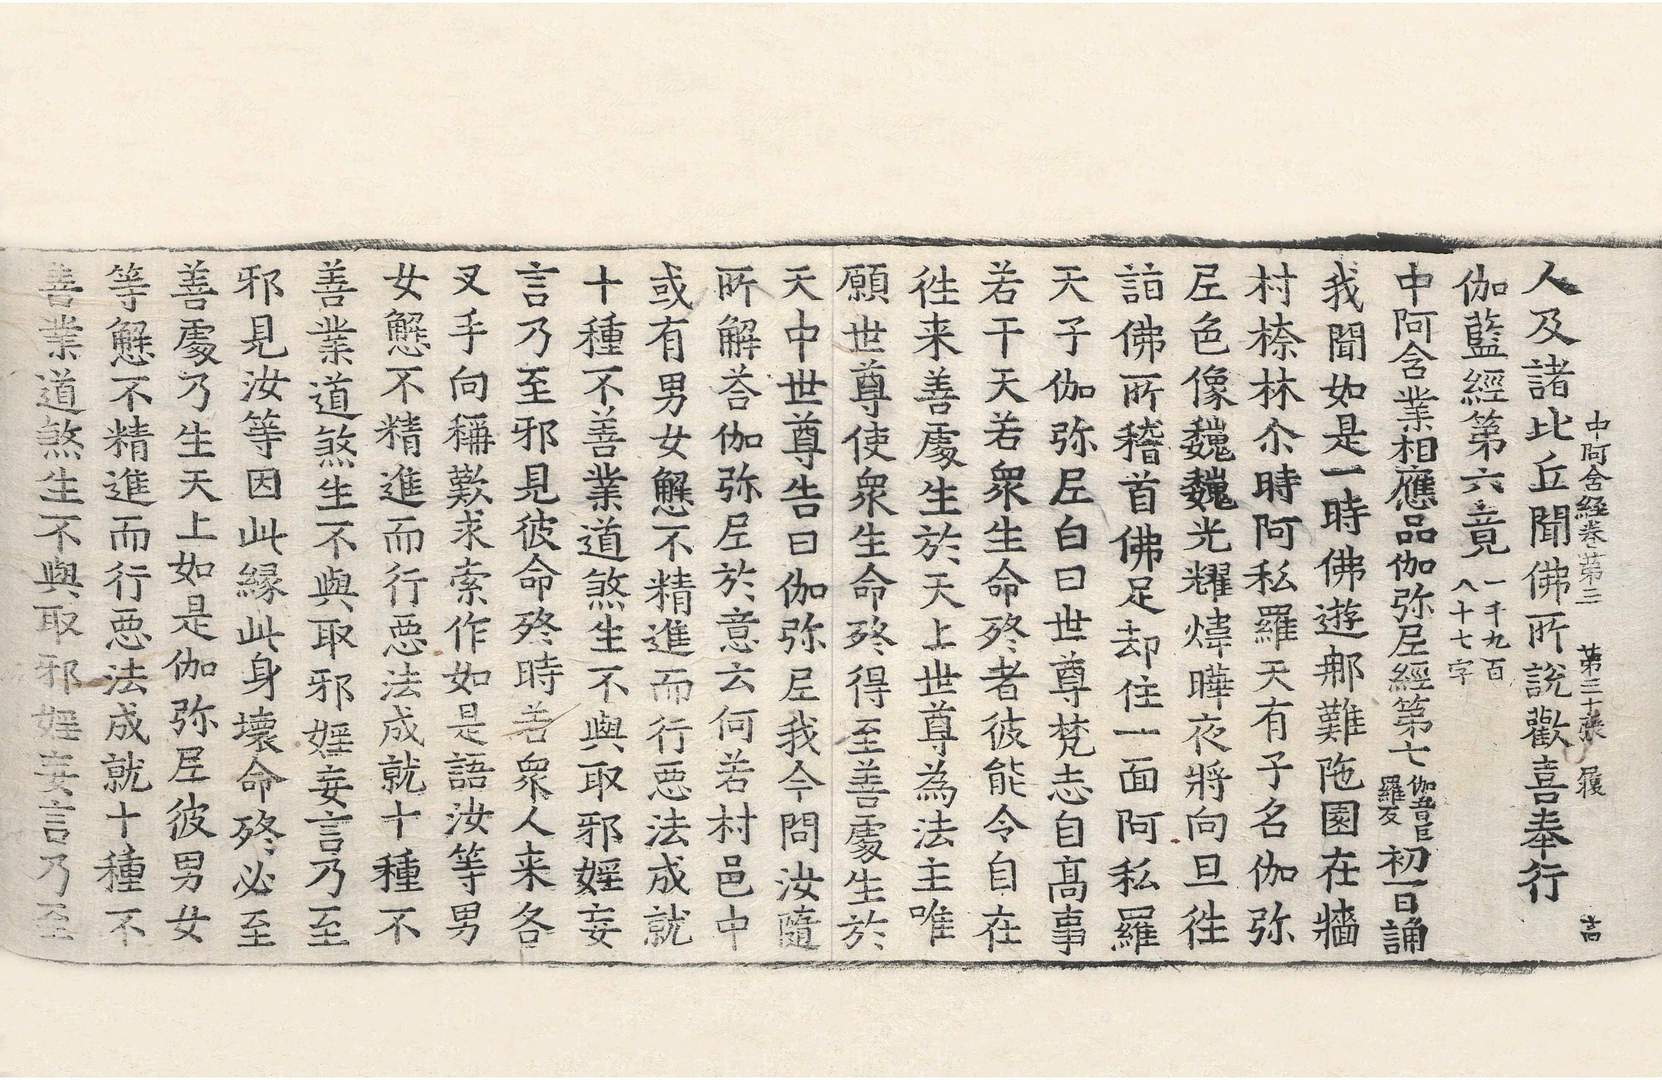 中阿含經卷第三　第三十張　履　言
人及諸比丘聞佛所說歡喜奉行
伽藍經第六竟 一千九百
八十七字
中阿含業相應品伽弥尼經第七
初一日誦
我聞如是一時佛遊那難陁園在牆
村㮈林尒時阿私羅天有子名伽弥
尼色像巍巍光耀煒曄夜將向旦徃
詣佛所稽首佛足却住一面阿私羅
天子伽弥尼白曰世尊梵志自髙事
若干天若衆生命終者彼能令自在
徃来善處生於天上世尊為法主唯
願世尊使衆生命終得至善處生於
天中世尊告曰伽弥尼我今問汝隨
所解荅伽弥尼於意云何若村邑中
或有男女懈不精進而行惡法成就
十種不善業道煞生不與取邪婬妄
言乃至邪見彼命終時若衆人来各
叉手向稱歎求索作如是語汝等男
女懈不精進而行惡法成就十種不
善業道煞生不與取邪婬妄言乃至
邪見汝等因此緣此身壞命終必至
善處乃生天上如是伽弥尼彼男女
等懈不精進而行惡法成就十種不
善業道煞生不與取邪婬妄言乃至